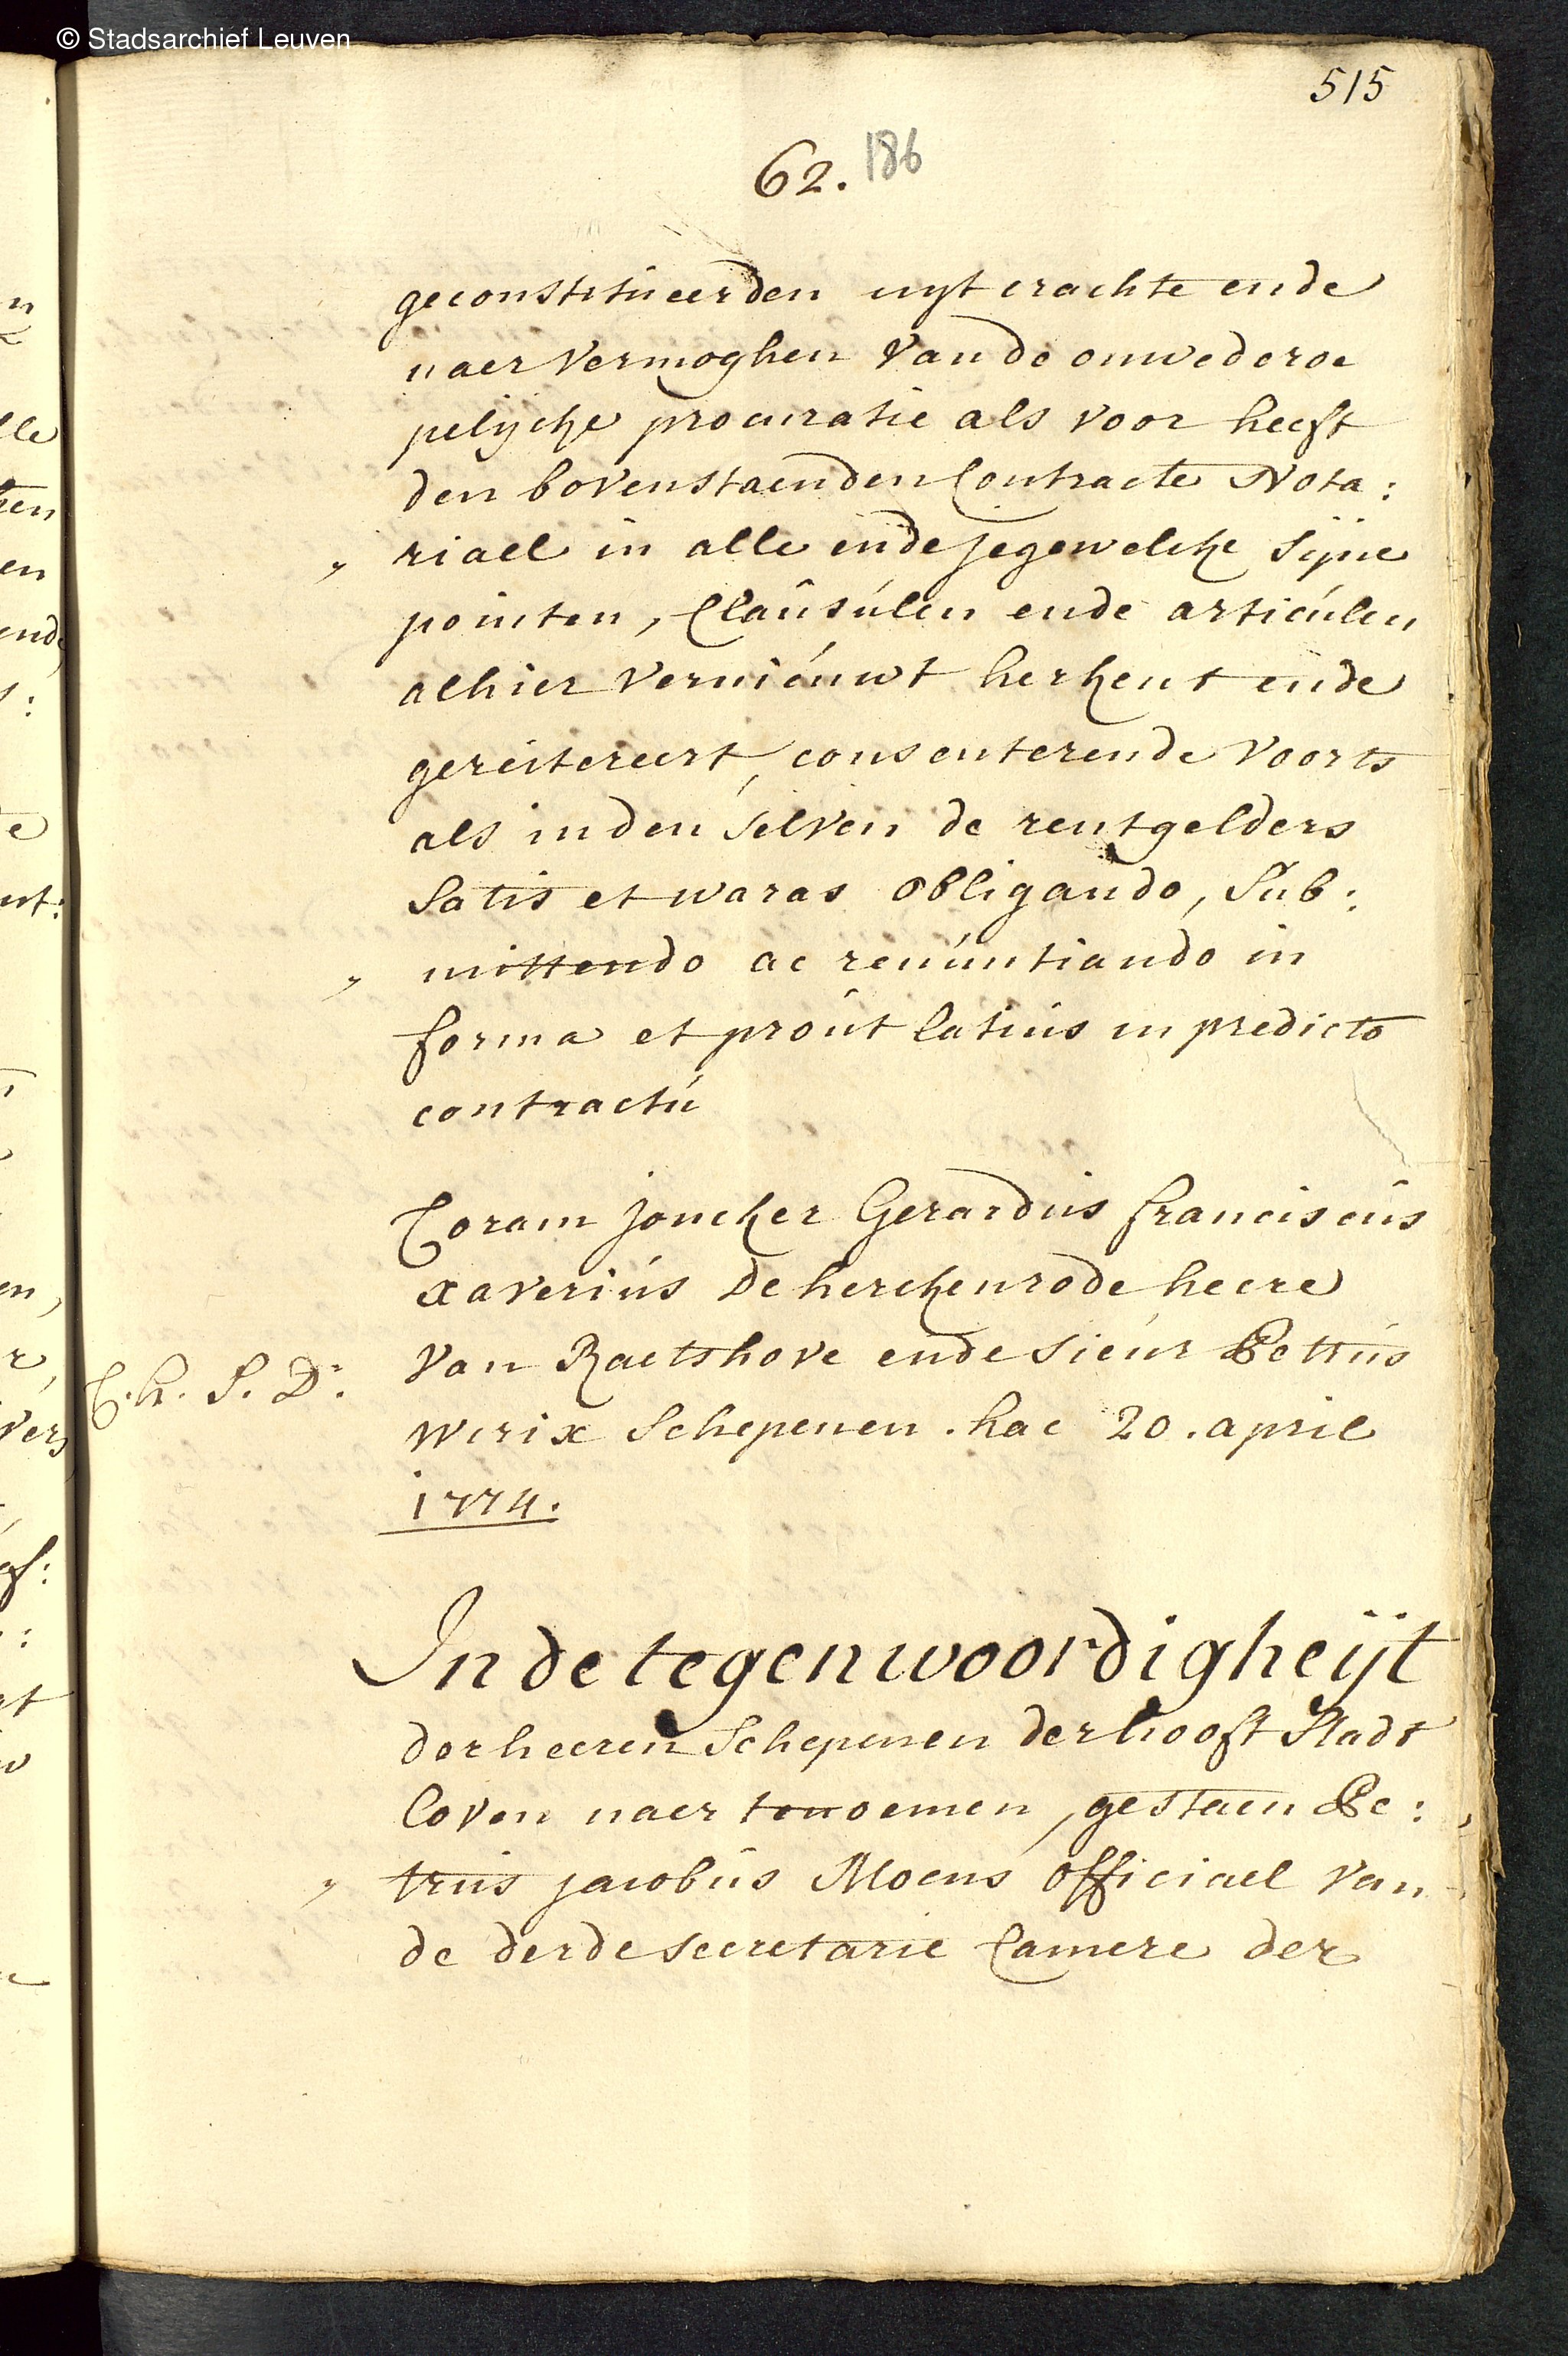 © Stadsarchief Leuven
515
62. 186
geconstitueerden uyt crachte ende
naer vermoghen van de onwederoe
pelycke procuratie als voor heeft
den bovenstaenden Contracte Nota:
riael in alle ende jegewelcke sijne
pointen, Clausulen ende articulen
alhier vernieuwt herkent ende
gereitereert, consenterende voorts
als in den selven de rentgelders
satis et waras obligando, sub:
mittendo ac renuntiando in
forma et prout latius in predicto
contractu
Coram joncker Gerardus franciscus
xaverius de herckenrode heere
van Raetshove ende sieur Pettrus
C.h. S. D:
Wirix Schepenen. hac 20. april
1774.
In de tegenwoordigheijt
der heeren Schepenen der hooft Stadt
loven naer tenoemen, gestaen Pe:
trus jacobus Moens officiael van
de derde secretarie Camere der